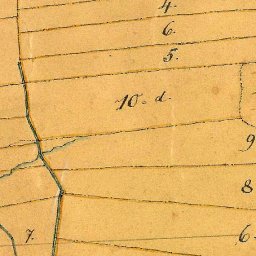 4.
6.
5.
10. d.
9
8
7.
6.